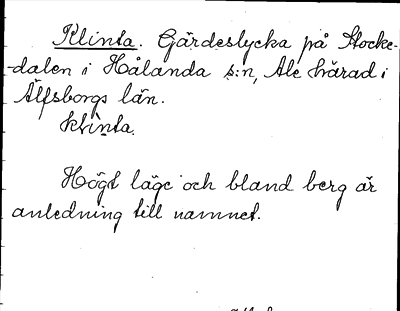 Klinta. Gärdeslycka på Stocke-
-dalen i Hålanda s:n, Ale härad i
Älfsborgs län.
klinta.
Högt läge och bland berg är
anledning till namnet.